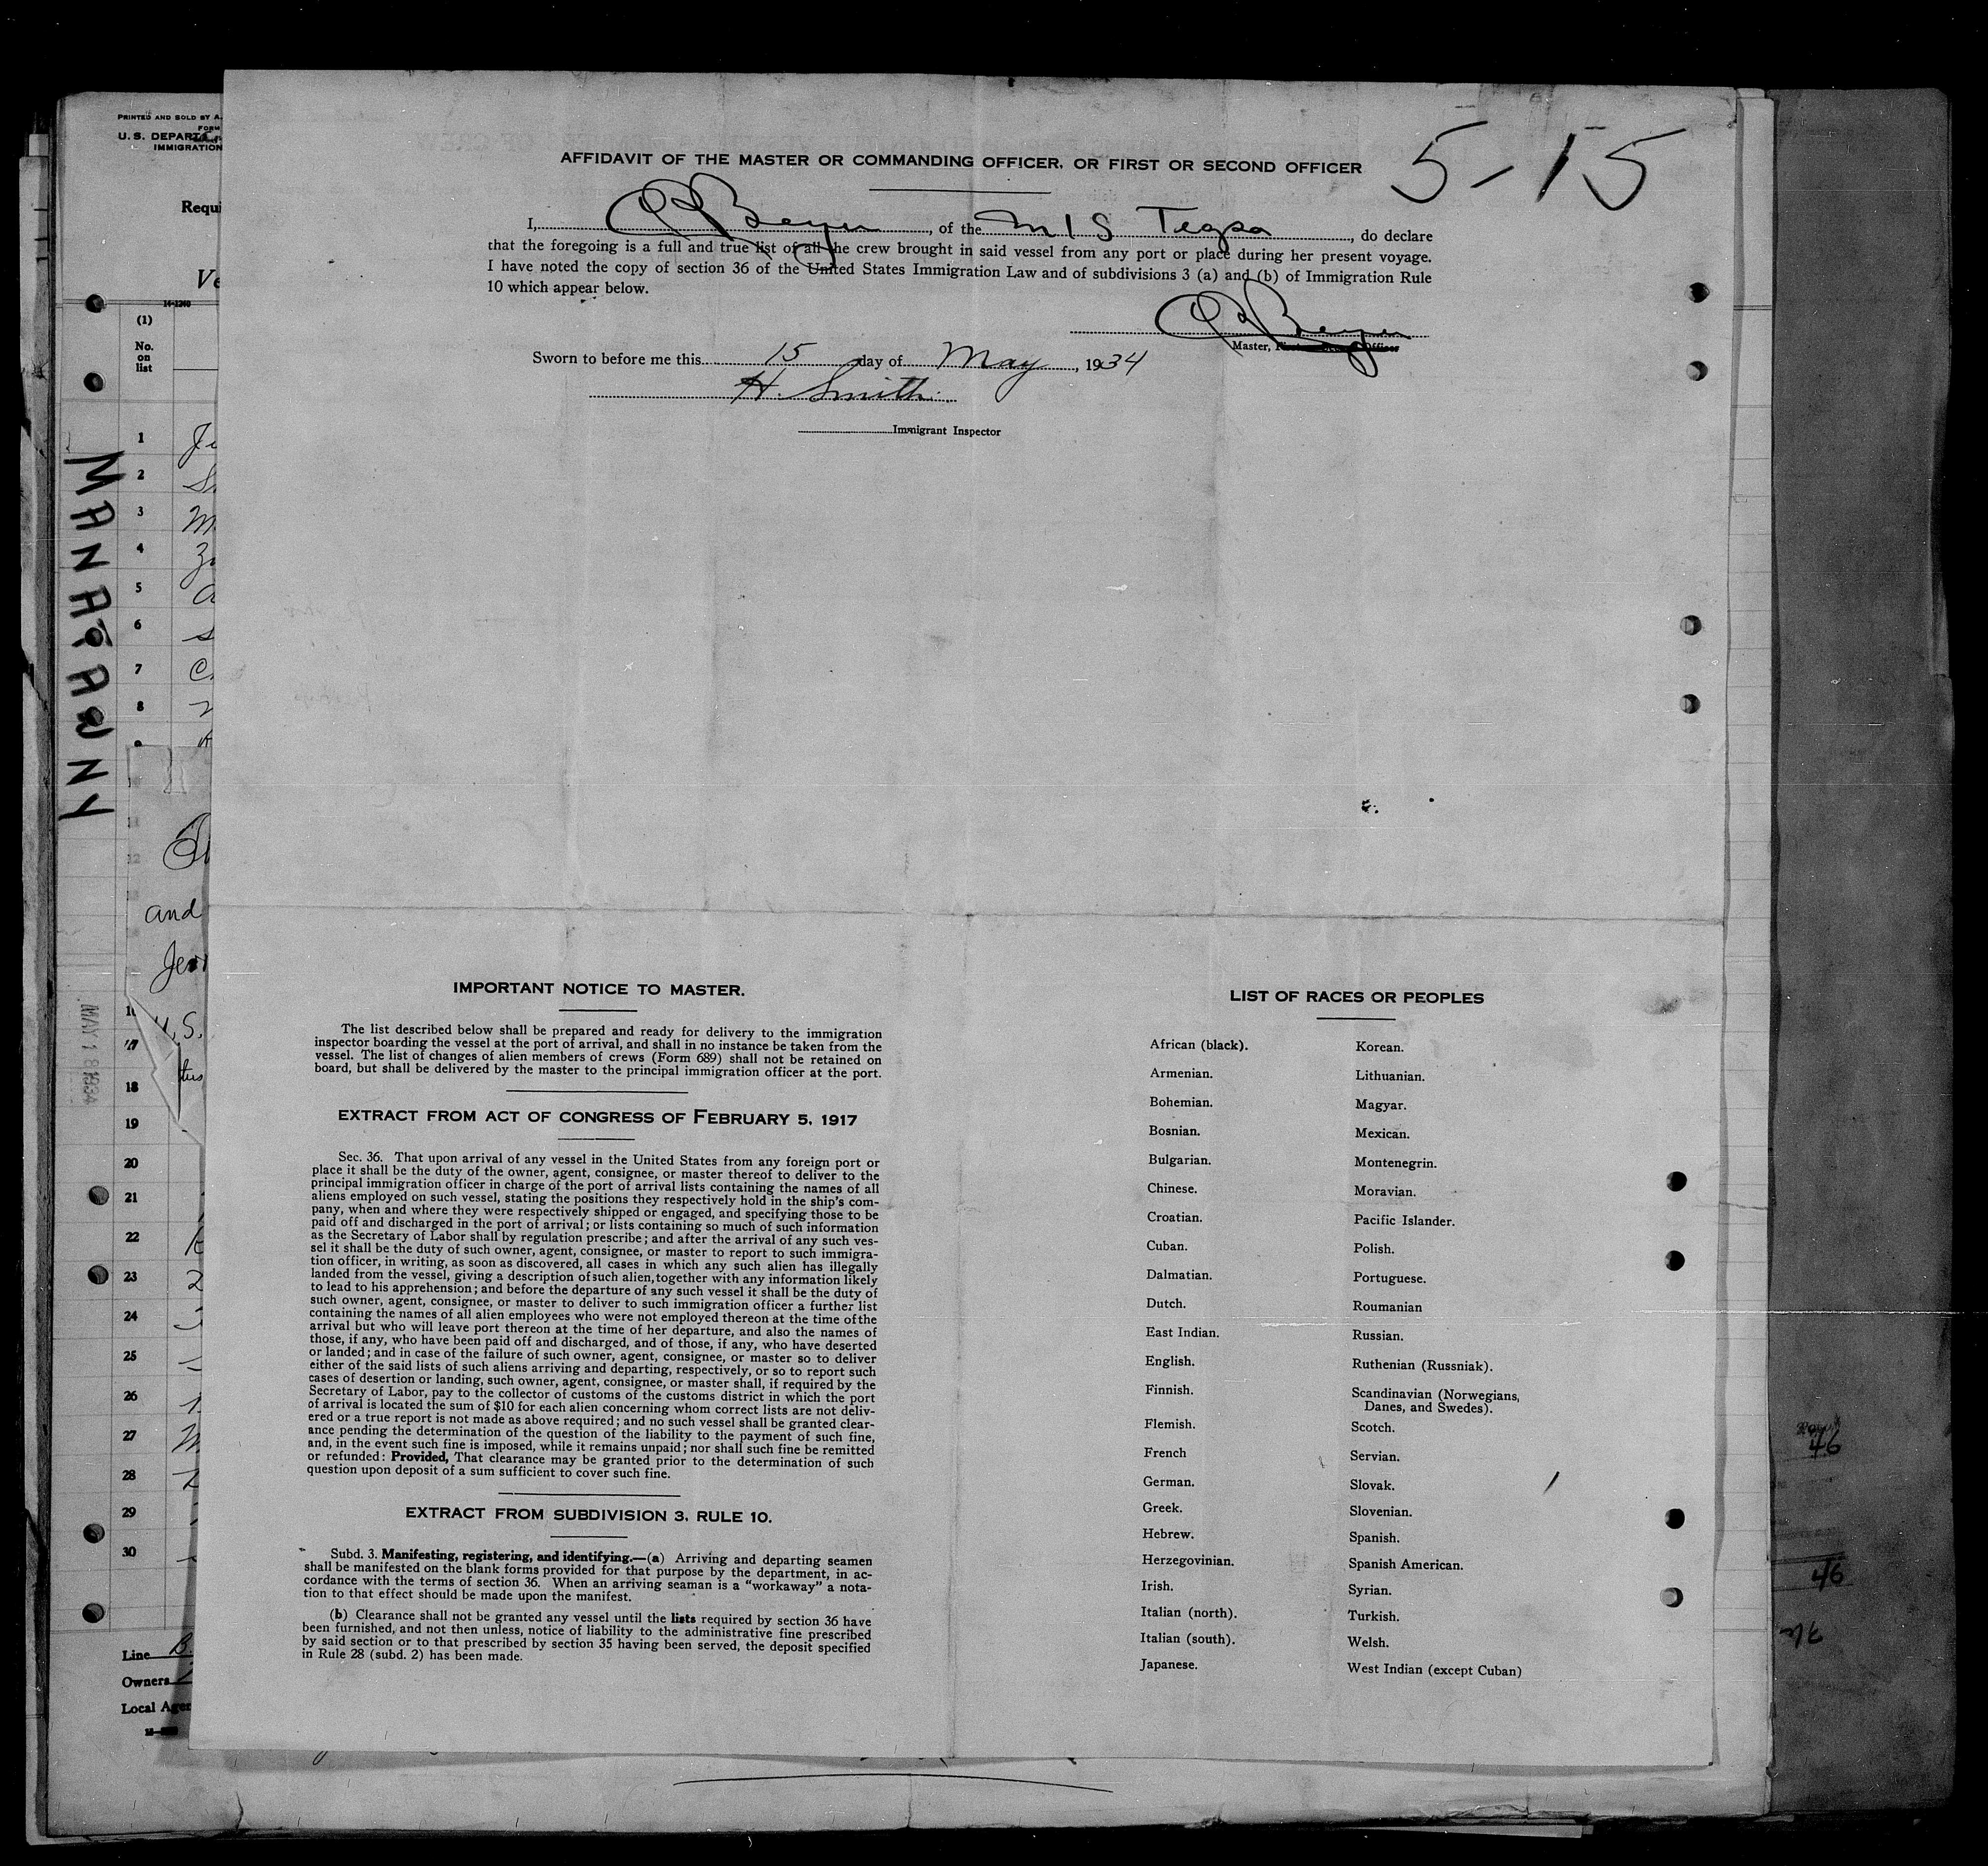 PRINTED AND SOLD BY A.
FORM
U. S. DEPART
IMMIGRATION
Requi
Ve
14-1240
(1)
No.
on
list
1
2
3
4
5
6
7
8
MANATAWNY
and
U.S.
MAY 18 1934
17
18
19
20
21
22
23
24
25
26
27
28
29
30
Line B
Owners
Local Agen
5-15
AFFIDAVIT OF THE MASTER OR COMMANDING OFFICER, OR FIRST OR SECOND OFFICER
I, Beyer, of the M/S Tegra, do declare
that the foregoing is a full and true list of all the crew brought in said vessel from any port or place during her present voyage.
I have noted the copy of section 36 of the United States Immigration Law and of subdivisions 3 (a) and (b) of Immigration Rule
10 which appear below.
Beyer
Master, First or Second Officer
Sworn to before me this 15 day of May, 1934
H. Smith
Immigrant Inspector
IMPORTANT NOTICE TO MASTER.
The list described below shall be prepared and ready for delivery to the immigration
inspector boarding the vessel at the port of arrival, and shall in no instance be taken from the
vessel. The list of changes of alien members of crews (Form 689) shall not be retained on
board, but shall be delivered by the master to the principal immigration officer at the port.
EXTRACT FROM ACT OF CONGRESS OF FEBRUARY 5, 1917
Sec. 36. That upon arrival of any vessel in the United States from any foreign port or
place it shall be the duty of the owner, agent, consignee, or master thereof to deliver to the
principal immigration officer in charge of the port of arrival lists containing the names of all
aliens employed on such vessel, stating the positions they respectively hold in the ship's com-
pany, when and where they were respectively shipped or engaged, and specifying those to be
paid off and discharged in the port of arrival; or lists containing so much of such information
as the Secretary of Labor shall by regulation prescribe; and after the arrival of any such ves-
sel it shall be the duty of such owner, agent, consignee, or master to report to such immigra-
tion officer, in writing, as soon as discovered, all cases in which any such alien has illegally
landed from the vessel, giving a description of such alien, together with any information likely
to lead to his apprehension; and before the departure of any such vessel it shall be the duty of
such owner, agent, consignee, or master to deliver to such immigration officer a further list
containing the names of all alien employees who were not employed thereon at the time of the
arrival but who will leave port thereon at the time of her departure, and also the names of
those, if any, who have been paid off and discharged, and of those, if any, who have deserted
or landed; and in case of the failure of such owner, agent, consignee, or master so to deliver
either of the said lists of such aliens arriving and departing, respectively, or so to report such
cases of desertion or landing, such owner, agent, consignee, or master shall, if required by the
Secretary of Labor, pay to the collector of customs of the customs district in which the port
of arrival is located the sum of $10 for each alien concerning whom correct lists are not deliv-
ered or a true report is not made as above required; and no such vessel shall be granted clear-
ance pending the determination of the question of the liability to the payment of such fine,
and, in the event such fine is imposed, while it remains unpaid; nor shall such fine be remitted
or refunded: Provided, That clearance may be granted prior to the determination of such
question upon deposit of a sum sufficient to cover such fine.
EXTRACT FROM SUBDIVISION 3, RULE 10.
Subd. 3. Manifesting, registering, and identifying.—(a) Arriving and departing seamen
shall be manifested on the blank forms provided for that purpose by the department, in ac-
cordance with the terms of section 36. When an arriving seaman is a "workaway" a nota-
tion to that effect should be made upon the manifest.
(b) Clearance shall not be granted any vessel until the lists required by section 36 have
been furnished, and not then unless, notice of liability to the administrative fine prescribed
by said section or to that prescribed by section 35 having been served, the deposit specified
in Rule 28 (subd. 2) has been made.
LIST OF RACES OR PEOPLES
African (black).
Armenian.
Bohemian.
Bosnian.
Bulgarian.
Chinese.
Croatian.
Cuban.
Dalmatian.
Dutch.
East Indian.
English.
Finnish.
Flemish.
French
German.
Greek.
Hebrew.
Herzegovinian.
Irish.
Italian (north).
Italian (south).
Japanese.
Korean.
Lithuanian.
Magyar.
Mexican.
Montenegrin.
Moravian.
Pacific Islander.
Polish.
Portuguese.
Roumanian
Russian.
Ruthenian (Russniak).
Scandinavian (Norwegians,
Danes, and Swedes).
Scotch.
Servian.
Slovak.
Slovenian.
Spanish.
Spanish American.
Syrian.
Turkish.
Welsh.
West Indian (except Cuban)
46
46